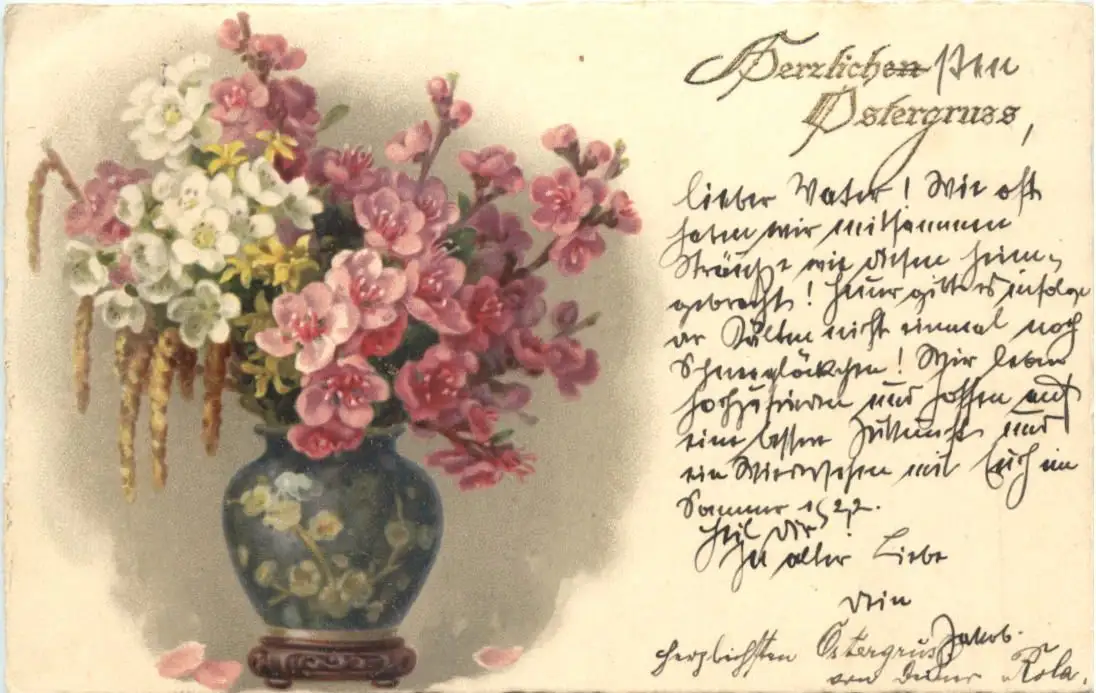 Herzlichen sten
Ostergruss,
lieber Vater! Wie oft
haben wir mitsammen
Sträuße wie diesen heim-
gebracht! Heuer gibt es infolge
der Kälte nicht einmal noch
Schneeglöckchen! Wir leben
hochzufrieden und hoffen auf
eine bessere Zukunft und
ein Wiedersehen mit Euch im
Sommer 1922.
Heil Dir!
In alter Liebe
Dein
Jakob.
herzlichsten Ostergruß
von Deiner